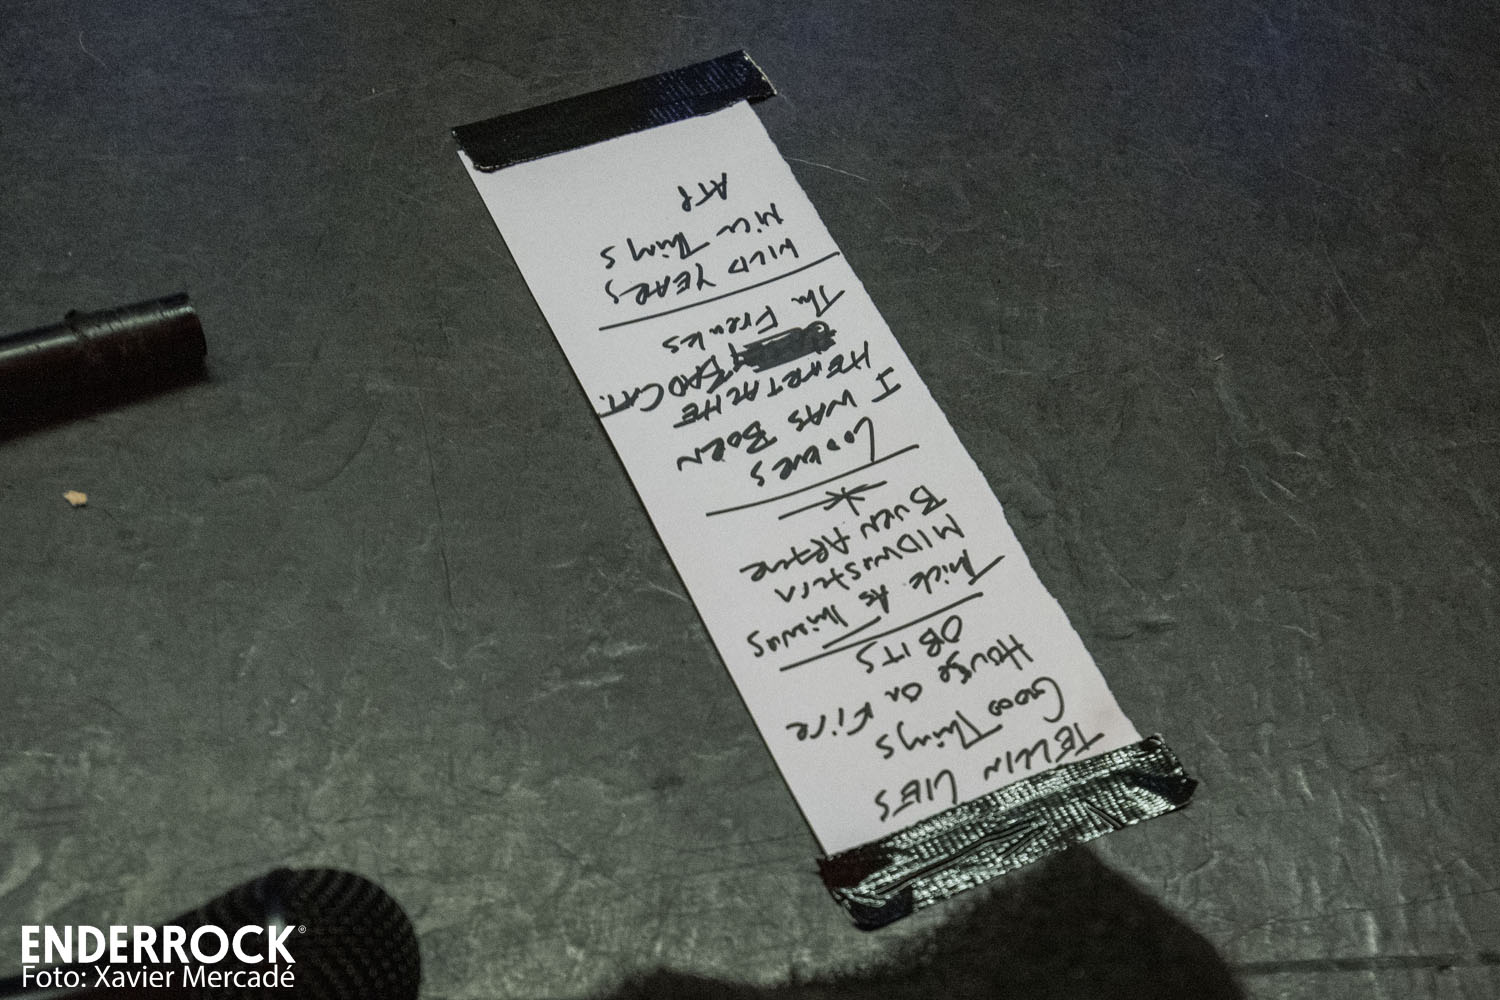 TELLIN LIES
GOOD Things
HOUSE On Fire
OBITS
Thick As Thieves
MIDWESTERN
BUEN AFTER
LODGERS
I WAS BORN
HEARTACHE
BAD CAT.
The Freaks
WILD YEARS
Nice Things
ATP
ENDERROCK®
Foto: Xavier Mercadé